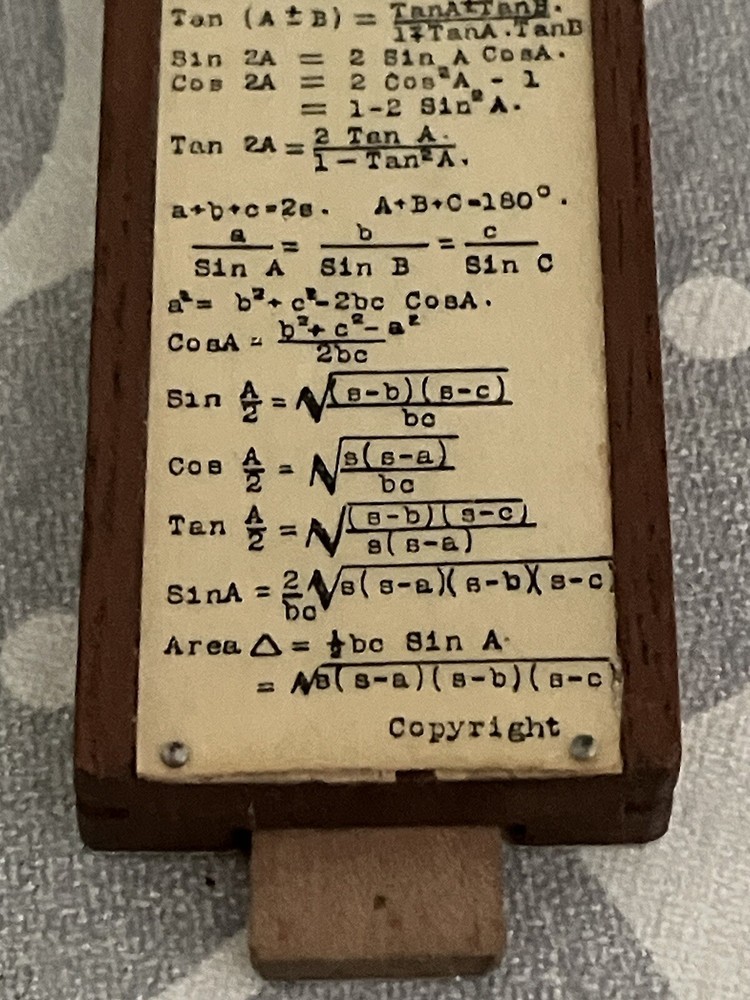 Tan (A ± B) = TanA±TanB.
1∓TanA.TanB
Sin 2A = 2 Sin A CosA.
Cos 2A = 2 Cos²A - 1
= 1-2 Sin²A.
Tan 2A = 2 Tan A.
1 - Tan²A.
a+b+c=2s. A+B+C=180°.
a = b = c
Sin A Sin B Sin C
a²= b²+ c²-2bc CosA.
CosA = b²+ c²- a²
2bc
Sin A/2 = √(s-b)(s-c)
bc
Cos A/2 = √s(s-a)
bc
Tan A/2 = √(s-b)(s-c)
s(s-a)
SinA = 2/bc √s(s-a)(s-b)(s-c)
Area △ = ½bc Sin A.
= √s(s-a)(s-b)(s-c)
Copyright